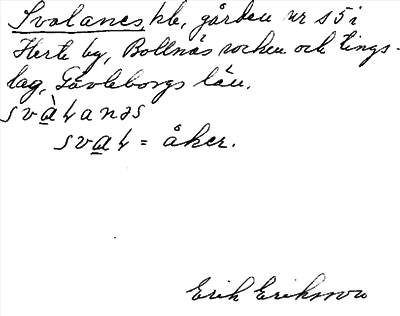 Svalanes, hb, gården nr 15 i
Herte by, Bollnäs socken och tings-
lag, Gävleborgs län.
svàꞎanəs
svaꞎ = åker.
Erik Eriksson